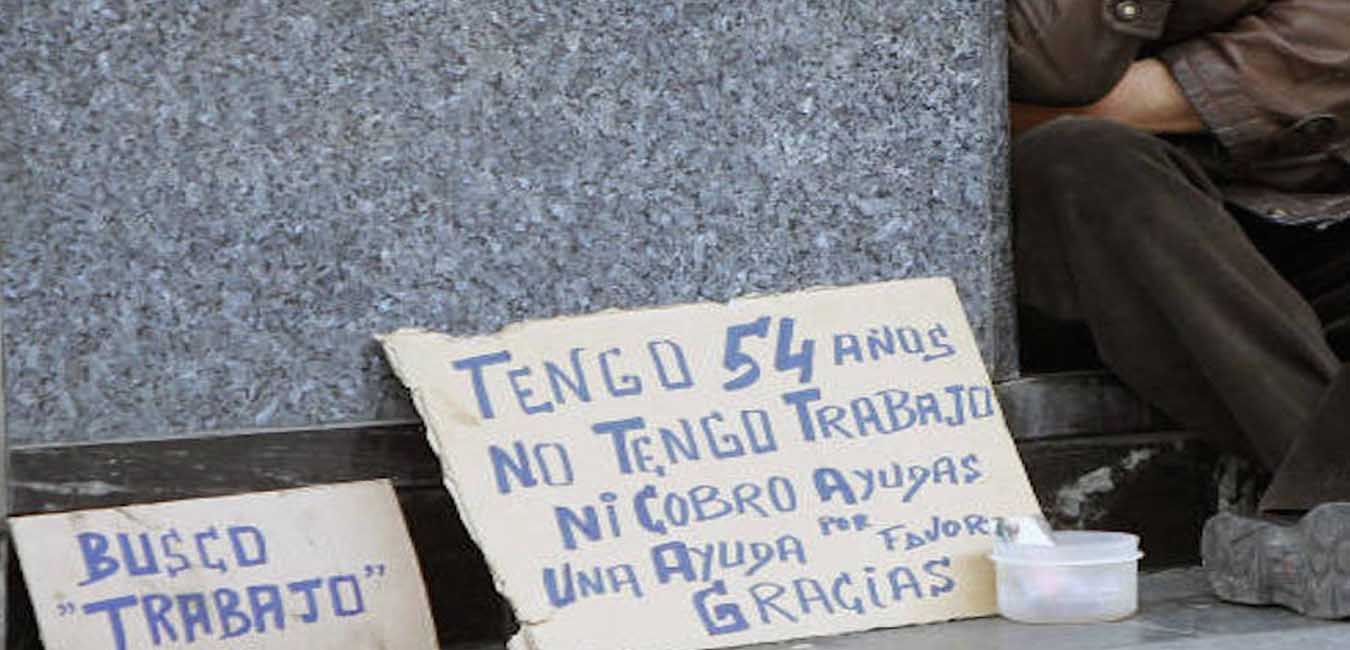 BUSCO
"TRABAJO"
TENGO 54 AÑOS
NO TENGO TRABAJO
Ni COBRO AYUDAS
UNA AYUDA POR FAVOR
GRACiAS